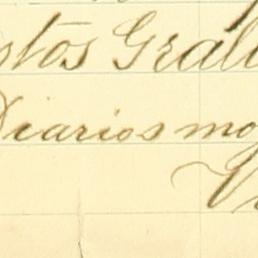 stos Gral
Diarios mo
V